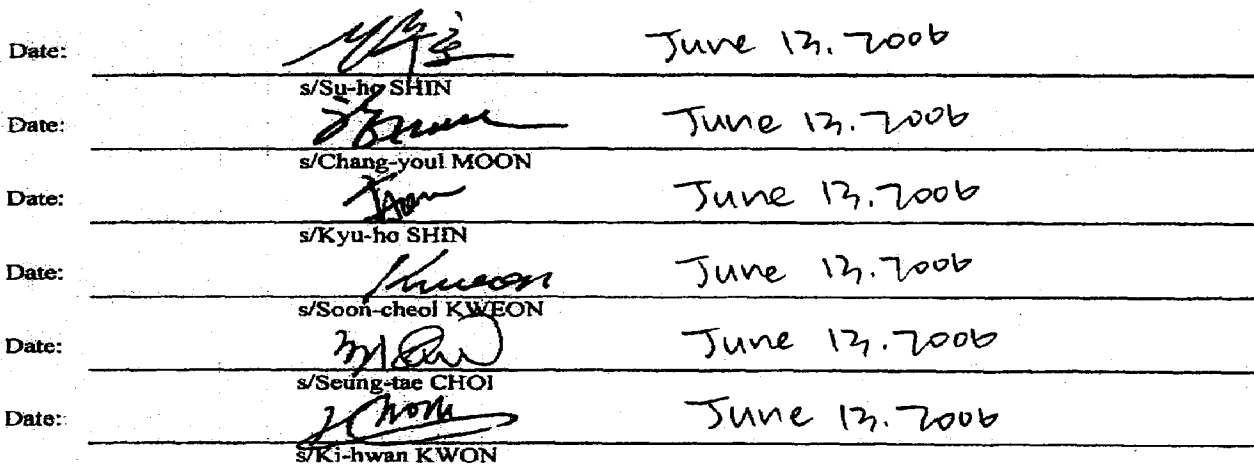 Date: June 13. 2006
s/Su-ho SHIN
Date: June 13. 2006
s/Chang-youl MOON
Date: June 13. 2006
s/Kyu-ho SHIN
Date: Kweon June 13. 2006
s/Soon-cheol KWEON
Date: June 13. 2006
s/Seung-tae CHOI
Date: June 13. 2006
s/Ki-hwan KWON